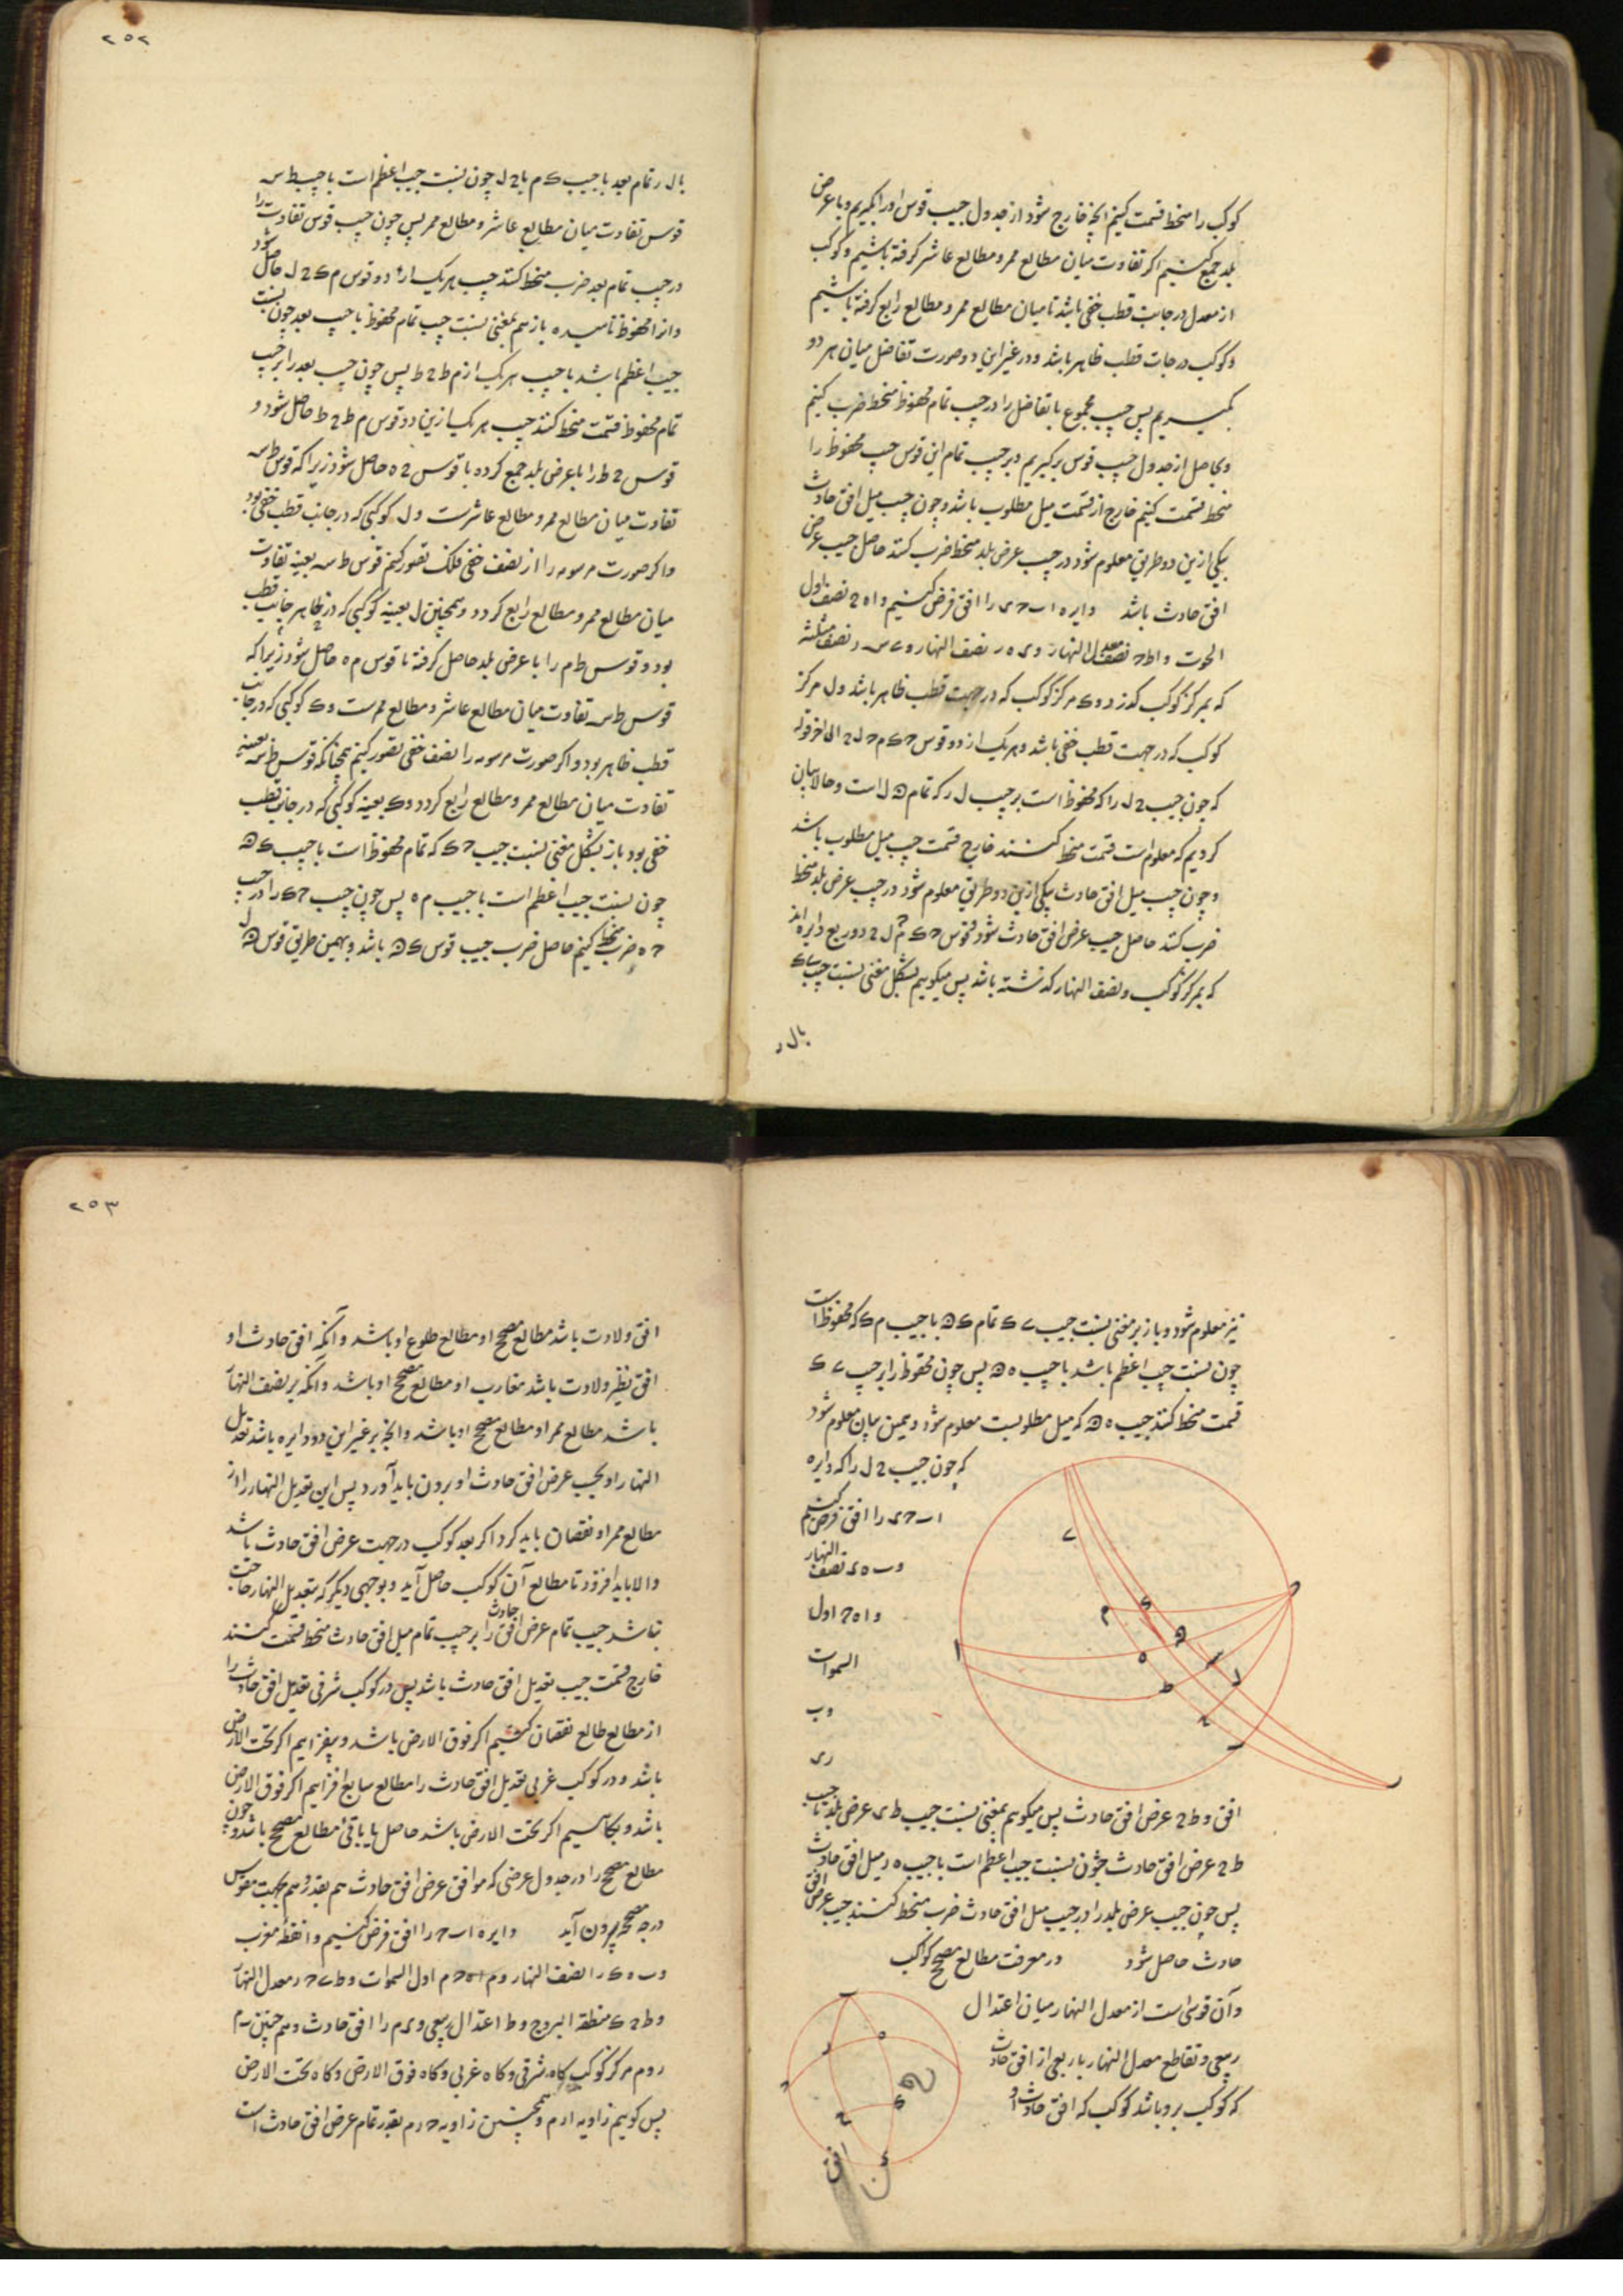 کوکب را منحط قسمت کنیم آنچه خارج شود از جدول جیب قوس او را بگیریم و با عرض
بلد جمع کنیم اگر تفاوت میان مطالع ممر و مطالع عاشر گرفته باشیم و کوکب
از معدل در جانب قطب خفی باشد تا میان مطالع ممر و مطالع رابع گرفته باشیم
و کوکب در جات قطب ظاهر باشد و در غیر این دو صورت تفاضل میان هر دو
بگیریم پس جیب مجموع یا تفاضل را در جیب تمام محفوظ منحط ضرب کنیم
و حاصل از جدول جیب قوس بر گیریم و بر جیب تمام این قوس جیب محفوظ را
منحط قسمت کنیم خارج از قسمت میل مطلوب باشد و چون جیب میل افق حادث
بیکی ازین دو طریق معلوم شود در جیب عرض بلد منحط ضرب کنند حاصل جیب عرض
افق حادث باشد دایره ا ب ح ی را افق فرض کنیم و ا ه ح نصف اول
السموت و ا ط ح نصف معدل النهار و ی ه ر نصف النهار و ع س ر نصف
که بمرکز کوکب گذرد و ک مرکز کوکب که در جهت قطب ظاهر باشد و ل مرکز
کوکب که در جهت قطب خفی باشد و هر یک از دو قوس ح ک م ح ل ح الی آخر قوله
که چون جیب ح ل را که محفوظ است بر جیب ل ر که تمام ه ل است و حالا بیان
کردیم که معلوم است قسمت منحط کنند خارج قسمت جیب میل مطلوب باشد
و چون جیب میل افق حادث بیکی ازین دو طریق معلوم شود در جیب عرض بلد منحط
ضرب کنند حاصل جیب عرض افق حادث شود قوس ح ک م ح ل ح دو ربع دایره اند
که بمرکز کوکب و نصف النهار گذشته باشد پس میگوییم بشکل مغنی نسبت جیب ع ک
بال ر
۲۵۲
بال ر تمام بعد با جیب ک م یا ح ل چون نسبت جیب اعظم است با جیب ط س
قوس تفاوت میان مطالع عاشر و مطالع ممر پس چون جیب قوس تفاوت را
در جیب تمام بعد ضرب منحط کنند جیب هر یک از دو قوس م ک ح ل حاصل شود
و آنرا محفوظ نامیده باز هم بمغنی نسبت جیب تمام محفوظ با جیب بعد چون نسبت
جیب اعظم باشد با جیب هر یک از م ط ح ط پس چون جیب بعد را بر جیب
تمام محفوظ قسمت منحط کنند جیب هر یک ازین دو قوس م ط ح ط حاصل شود و
قوس ح ط را با عرض بلد جمع کرده با قوس ح ه حاصل شود زیرا که قوس ط س
تفاوت میان مطالع ممر و مطالع عاشرست و ل کوکبی که در جانب قطب خفی بود
و اگر صورت مرسومه را از نصف خفی فلک تصور کنیم قوس ط س بعینه تفاوت
میان مطالع ممر و مطالع رابع گردد و همچنین ل بعینه کوکبی که در جانب قطب ظاهر
بود و قوس ط م را با عرض بلد حاصل گرفته تا قوس م ه حاصل شود زیرا که
قوس ط س تفاوت میان مطالع عاشر و مطالع ممرست و ک کوکبی که در جانب
قطب ظاهر بود و اگر صورت مرسومه را نصف خفی تصور کنیم همچنانکه قوس ط س بعینه
تفاوت میان مطالع ممر و مطالع رابع گردد و ک بعینه کوکبی که در جانب قطب
خفی بود باز بشکل مغنی نسبت جیب ح ک که تمام محفوظ است با جیب ک ه
چون نسبت جیب اعظم است با جیب م ه پس چون جیب ح ک را در جیب
ح ه ضرب منحط کنیم حاصل ضرب جیب قوس ک ه باشد و بهمین طریق قوس ه ل
نیز معلوم شود و باز بر مغنی نسبت جیب ع ک تمام ک ه با جیب م ک که محفوظ است
چون نسبت جیب اعظم باشد با جیب ه ه پس چون محفوظ را بر جیب ع ک
قسمت منحط کنند جیب ه ه که میل مطلوبست معلوم شود و بهمین بیان معلوم شود
که چون جیب ح ل را که دایره
ا ب ح ی را افق فرض کنیم
و ب ه ی نصف النهار
و ا ه ح اول
السموات
و ب
ر ی
افق و ط ح عرض افق حادث پس میگوییم بمغنی نسبت جیب ط ی عرض بلد با جیب
ط ح عرض افق حادث چون نسبت جیب اعظم است با جیب ه ر میل افق حادث
پس چون جیب عرض بلد را در جیب میل افق حادث ضرب منحط کنند جیب عرض افق
حادث حاصل شود در معرفت مطالع مصحح کواکب
و آن قوسی است از معدل النهار میان اعتدال
ربیعی و تقاطع معدل النهار با ربعی از افق حادث
که کوکب برو باشد کوکب که افق حادث او
۲۵۳
افق ولادت باشد مطالع مصحح او مطالع طلوع او باشد و آنکه افق حادث او
افق نظیر ولادت باشد مغارب او مطالع مصحح او باشد و آنکه بر نصف النهار
باشد مطالع ممر او مطالع مصحح او باشد و آنچه بر غیر این دو دایره باشد تعدیل
النهار او بحسب عرض افق حادث او برون باید آورد پس این تعدیل النهار را از
مطالع ممر او نقصان باید کرد اگر بعد کوکب در جهت عرض افق حادث باشد
والا باید افزود تا مطالع آن کوکب حاصل آید و بوجهی دیگر که بتعدیل النهار حاجت
نباشد جیب تمام عرض افق حادث را بر جیب تمام میل افق حادث منحط قسمت کنند
خارج قسمت جیب تعدیل افق حادث باشد پس در کوکب شرقی تعدیل افق حادث را
از مطالع طالع نقصان کنیم اگر فوق الارض باشد و بیفزاییم اگر تحت الارض
باشد و در کوکب غربی تعدیل افق حادث را مطالع سابع افزاییم اگر فوق الارض
باشد و بکاهیم اگر تحت الارض باشد حاصل یا باقی مطالع مصحح باشد و چون
مطالع مصحح را در جدول عرضی که موافق عرض افق حادث هم بقدر و هم بجهت مقوس
درجه مصححه برون آید دایره ا ب ح را افق فرض کنیم و ا نقطه مغرب
و ب ه ک را نصف النهار و م ا ه ح م اول السموات و ط ع ح ر معدل النهار
و ط ح ک منطقة البروج و ط اعتدال ربیعی و ی م را افق حادث و هم چنین ب م
ر و م مرکز کوکب گاه شرقی و گاه غربی و گاه فوق الارض و گاه تحت الارض
پس گوییم زاویه ا ر م و همچنین زاویه ح ر م بقدر تمام عرض افق حادث است